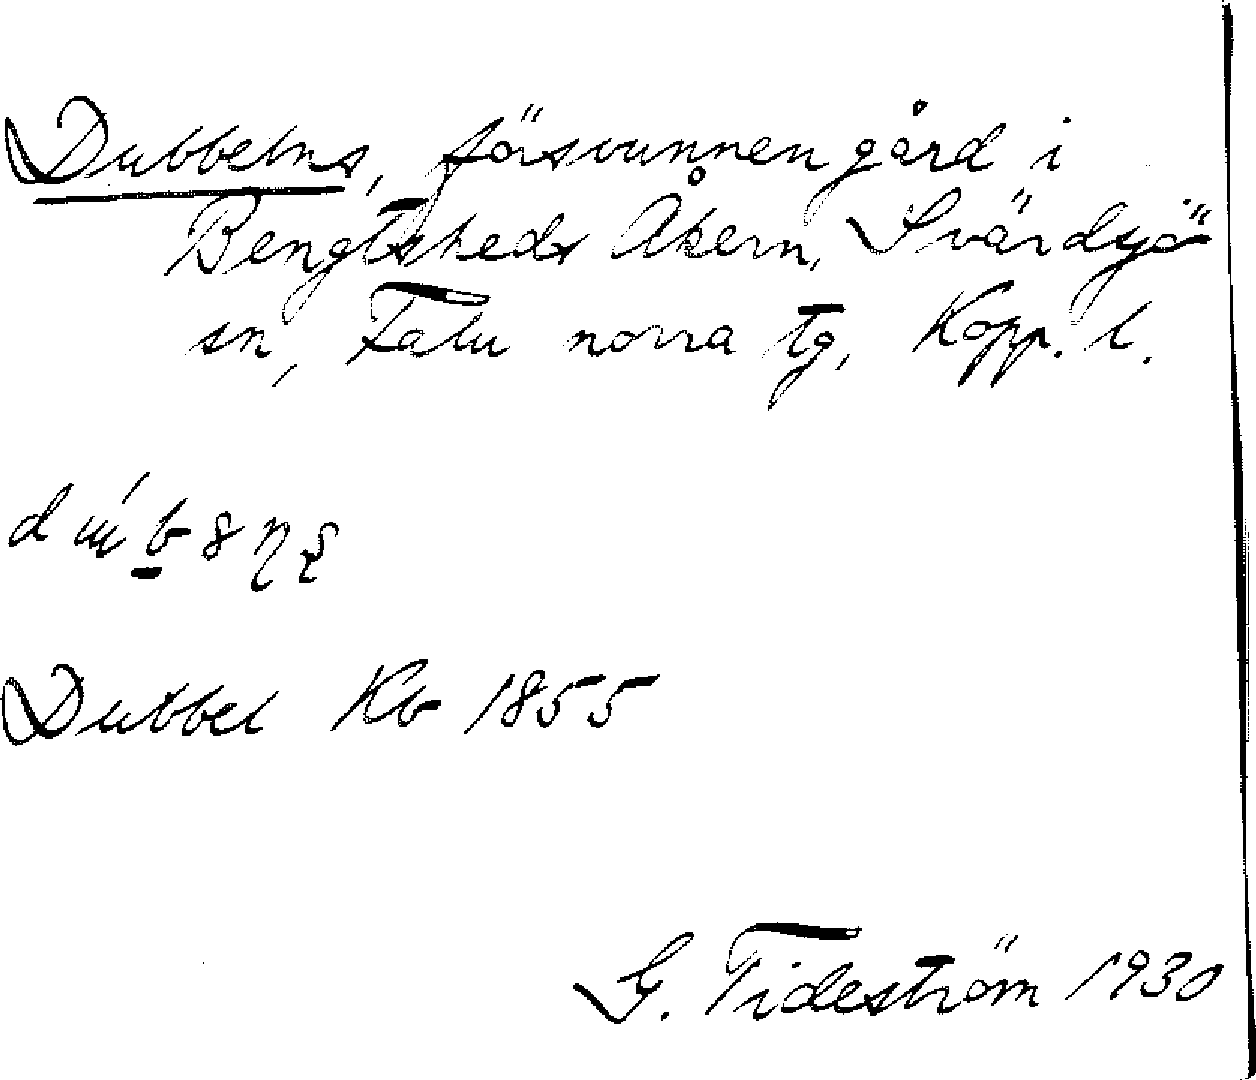 Dubbelns, försvunnen gård i
Bengtsheds Åkern, Svärdsjö
sn, Falu norra tg, Kopp. l.
Dubbel Kb 1855
G. Tideström 1930